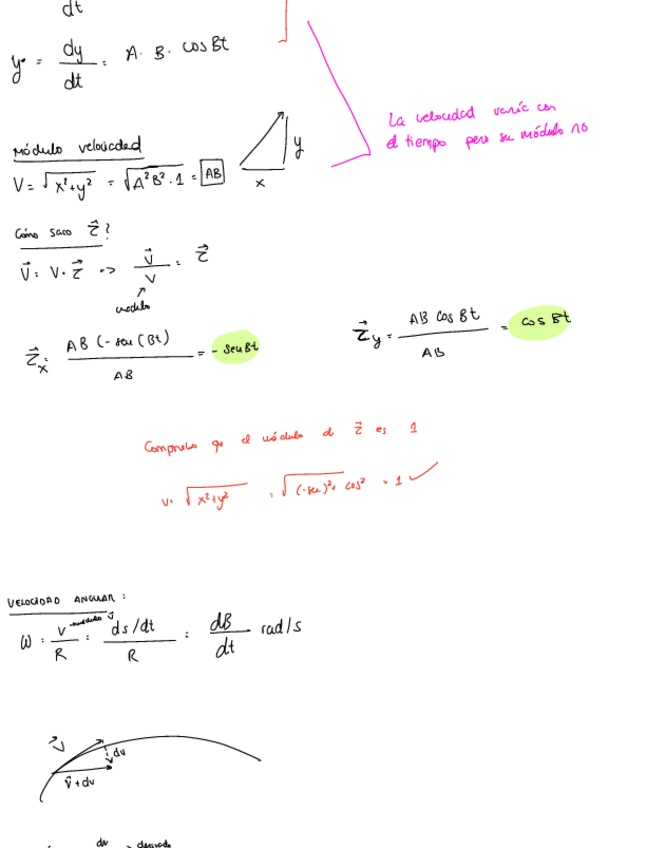 dt
ẏ = dy/dt = A · B · cos Bt
La velocidad varía con
el tiempo pero su módulo no
Módulo velocidad
V = √x²+y² = √A²B²·1 = AB
y
x
Cómo saco τ⃗?
v⃗ = V · τ⃗ => v⃗/v = τ⃗
módulo
τ⃗x = AB (-sen (Bt)/AB = - sen Bt
τ⃗y = AB cos Bt/AB = cos Bt
Compruebo que el módulo de τ⃗ es 1
v = √x²+y² = √(-sen)²+ cos² = 1 ✓
VELOCIDAD ANGULAR:
ω = v/R = ds/dt/R = dB/dt rad/s
módulo v⃗
v⃗
dv
v⃗ + dv
dv
derivada